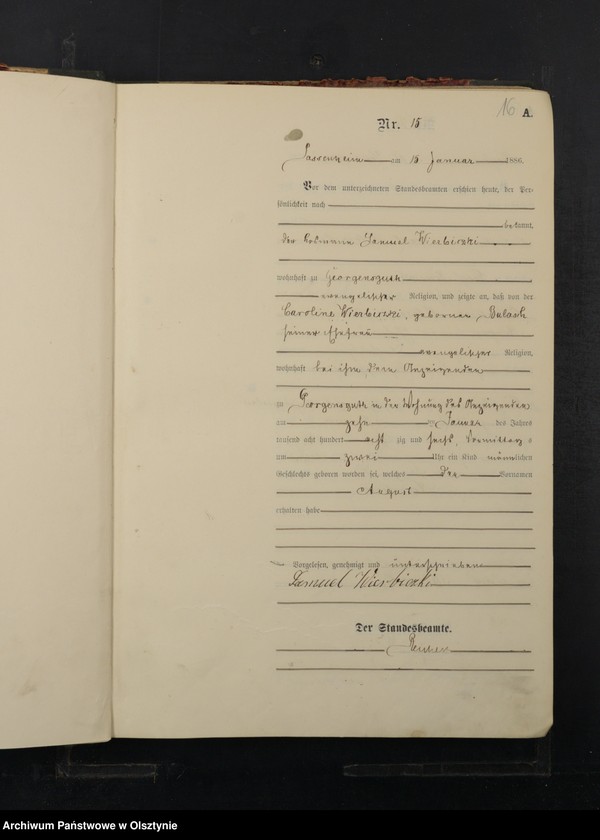 16 A.
Nr. 15
Passenheim am 15 Januar 1886.
Vor dem unterzeichneten Standesbeamten erschien heute, der Per-
sönlichkeit nach
bekannt,
der Samuel Wierbiczki
wohnhaft zu Georgensguth
evangelischer Religion, und zeigte an, daß von der
Caroline Wierbiczki, geborenen
seiner Ehefrau
evangelischer Religion,
wohnhaft bei ihm dem Anzeigenden
zu Georgensguth in der Wohnung des Anzeigenden
am zehn ten Januar des Jahres
tausend acht hundert acht zig und sechs, Vormittags
um zwei Uhr ein Kind männlichen
Geschlechts geboren worden sei, welches den Vornamen
August
erhalten habe
Vorgelesen, genehmigt und unterschrieben
Samuel Wierbiczki
Der Standesbeamte.
Archiwum Państwowe w Olsztynie